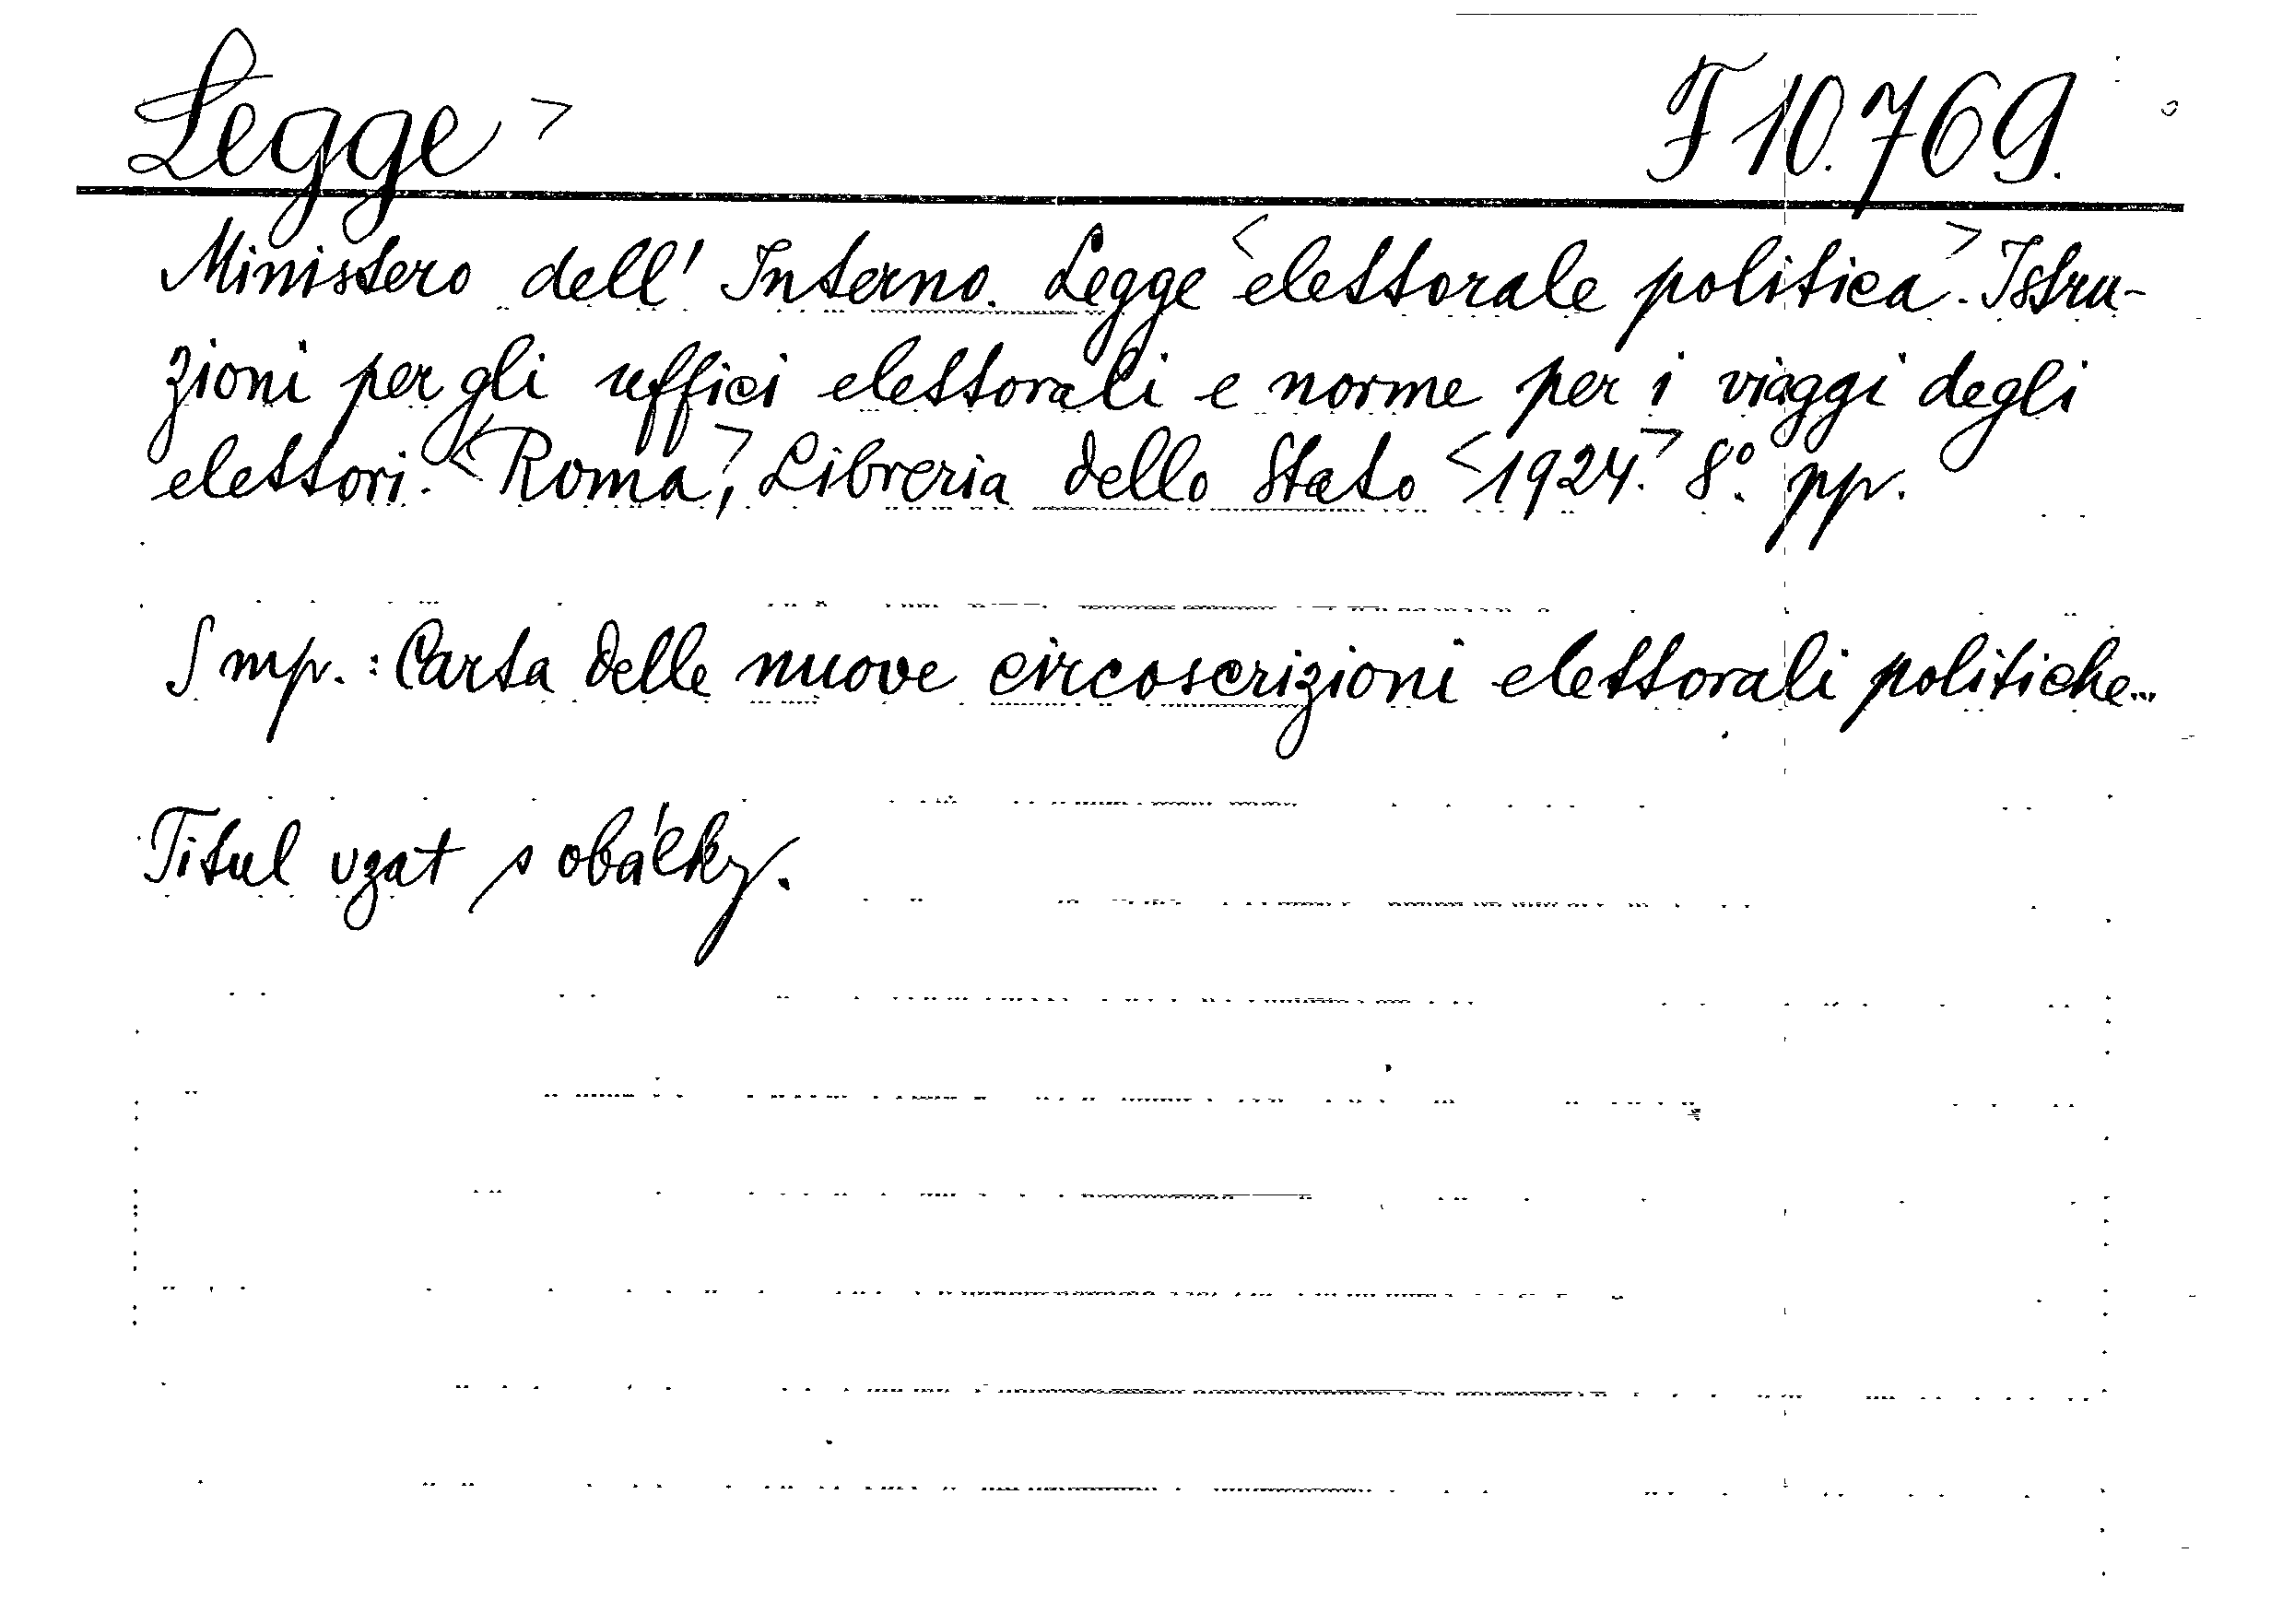 Legge > F 10.769.
Ministero dell' Interno. Legge <elettorale politica>. Istru-
zioni per gli uffici elettorali e norme per i viaggi degli
elettori. <Roma>, Libreria dello Stato <1924.> 8°. pp.
S mp.: Carta delle nuove circoscrizioni elettorali politiche...
Titul vzat s obálky.